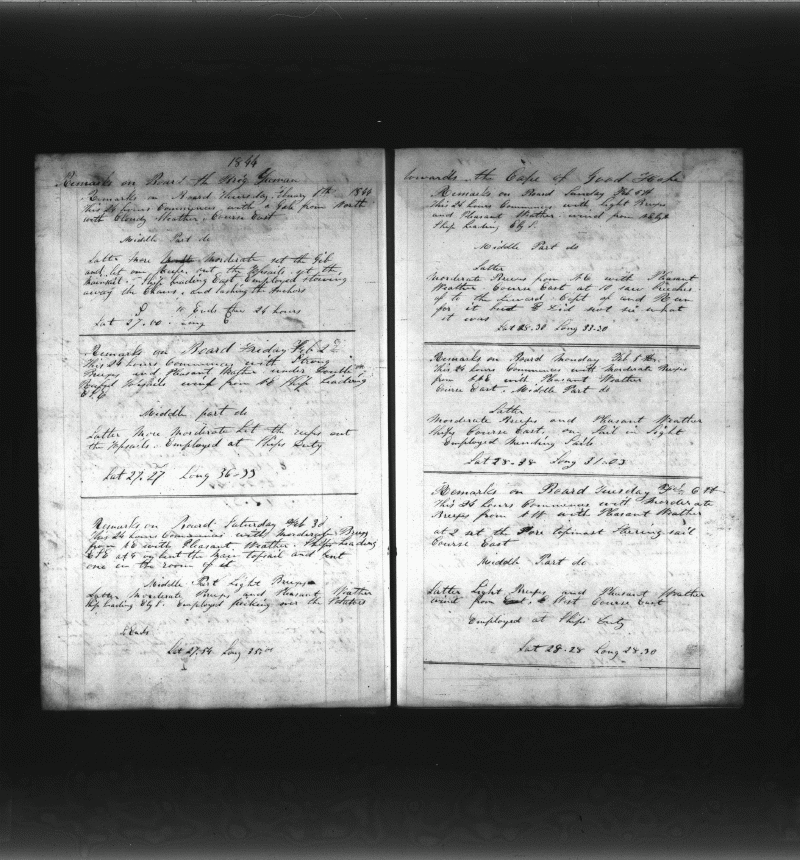 1844
Remarks on Board th Brig
Remarks on Board Thursday 1th 1844
This 24 hours Commences with a Gale from North
with Cloudy Weather. Course East
Middle Part do
Latter More Moderate set the Gib
and let our Reefs out the topsails set the
Ship heading East Employed stowing
away the Chains, and lashing the Anchors
Ends thes 24 hours
Lat 27.00 Long
Remarks on Board Friday Feb 2d
This 24 hours Commences with Strong
Breezes and Pleasant Weather under Double
Reefed topsails wind from Ship heading
Middle part do
Latter More Moderate let the reefs out
the topsails. Employed at Ships Duty
Lat 27.27 Long 36-33
Remarks on Board Saturday Feb 3d
This 24 hours Commences with Moderate Breezes
from with Pleasant Weather. Ship heading
at 8 unbent the Main topsail and bent
one in the room of it
Middle Part Light Breezes
Latter Moderate Breezes and Pleasant Weather
Ship heading Employed Picking over the Potatoes
Ends
Lat 27.54 Long 35.00
towards the Cape of Good Hope
Remarks on Board Sunday Feb 4th
This 24 hours Commences with Light Breezes
and Pleasant Weather wind from
Ship heading
Middle Part do
Latter
Moderate Breezes from NE with Pleasant
Weather Course East at 10 saw
of to the Leward Kept of and Run
for it but Did not see what
it was
Lat 28.30 Long 33.30
Remarks on Board Monday Feb 5th
This 24 hours Commences with Moderate Breezes
from with Pleasant Weather
Course East. Middle Part do
Latter
Moderate Breezes and Pleasant Weather
Ships Course East. on Sail in Sight
Employed Mending Sails
Lat 28.38 Long 31.03
Remarks on Board Tuesday Feb 6th
This 24 hours Commences with Moderate
Breezes from with Pleasant Weather
at 2 set the Fore topmast Steering sail
Course East
Middle Part do
Latter Light Breezes and Pleasant Weather
wind from West Course East
Employed at Ships Duty
Lat 28.28 Long 28.30